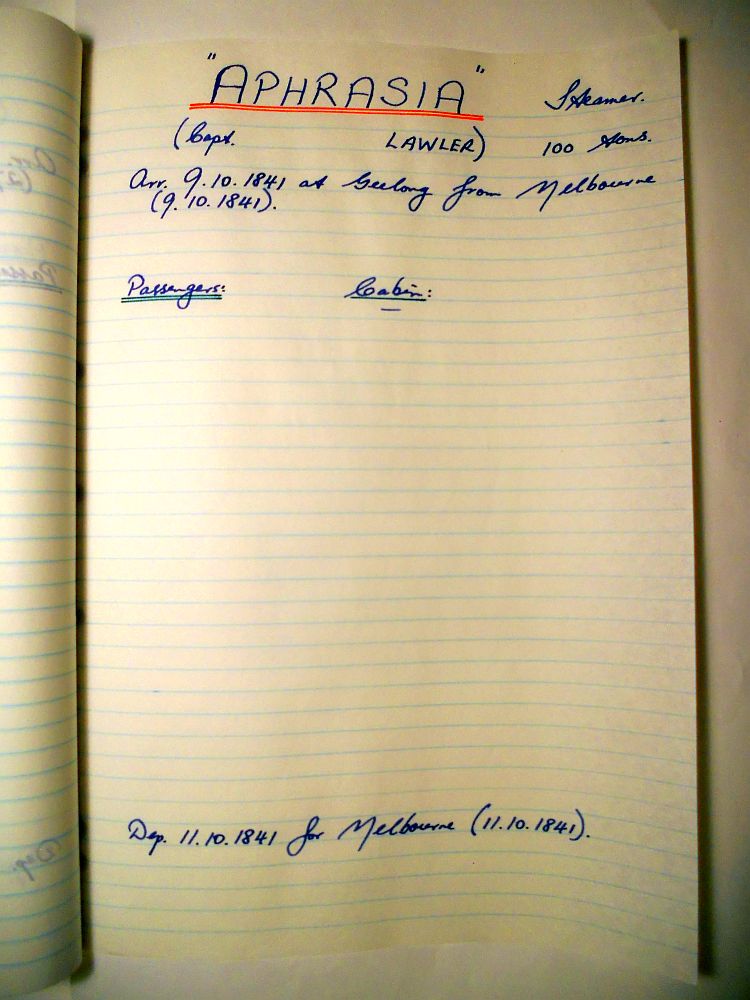 "APHRASIA" Steamer.
(Capt. LAWLER) 100 tons.
Arr. 9.10.1841 at Geelong from Melbourne
(9.10.1841).
Passengers: Cabin:
—
Dep. 11.10.1841 for Melbourne (11.10.1841).